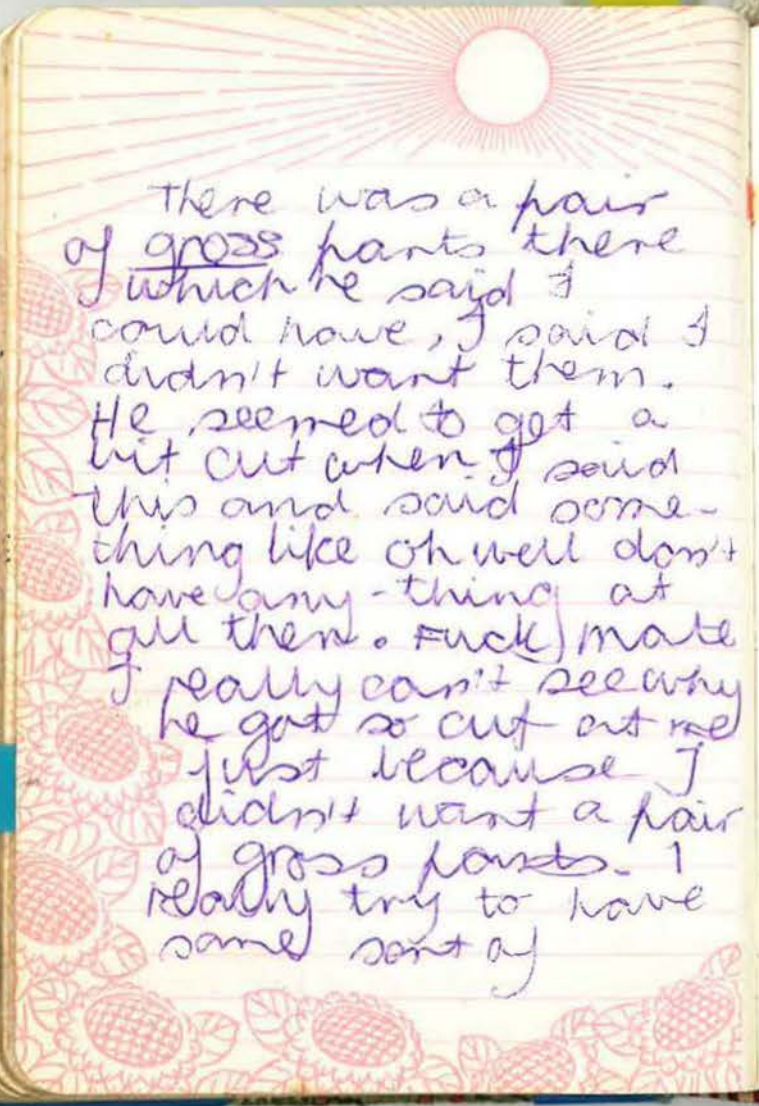 There was a pair
of gross pants there
which he said I
could have, I said I
didn't want them.
He seemed to get a
bit cut when I said
this and said some-
thing like oh well don't
have any-thing at
all then. Fuck mate
I really can't see why
he got so cut at me
just because I
didn't want a pair
of gross pants. I
really try to have
some sort of